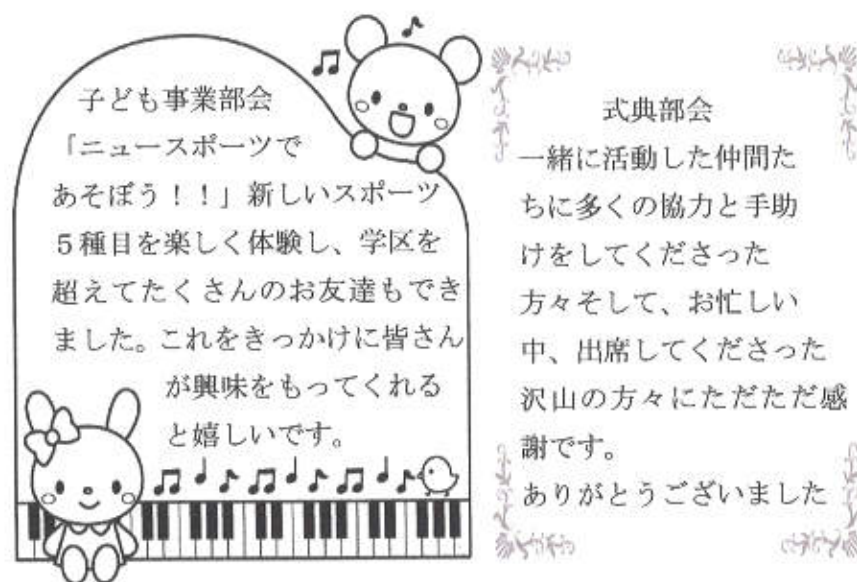 子ども事業部会
「ニュースポーツで
あそぼう！！」新しいスポーツ
５種目を楽しく体験し、学区を
超えてたくさんのお友達もでき
ました。これをきっかけに皆さん
が興味をもってくれる
と嬉しいです。
式典部会
一緒に活動した仲間た
ちに多くの協力と手助
けをしてくださった
方々そして、お忙しい
中、出席してくださった
沢山の方々にただただ感
謝です。
ありがとうございました